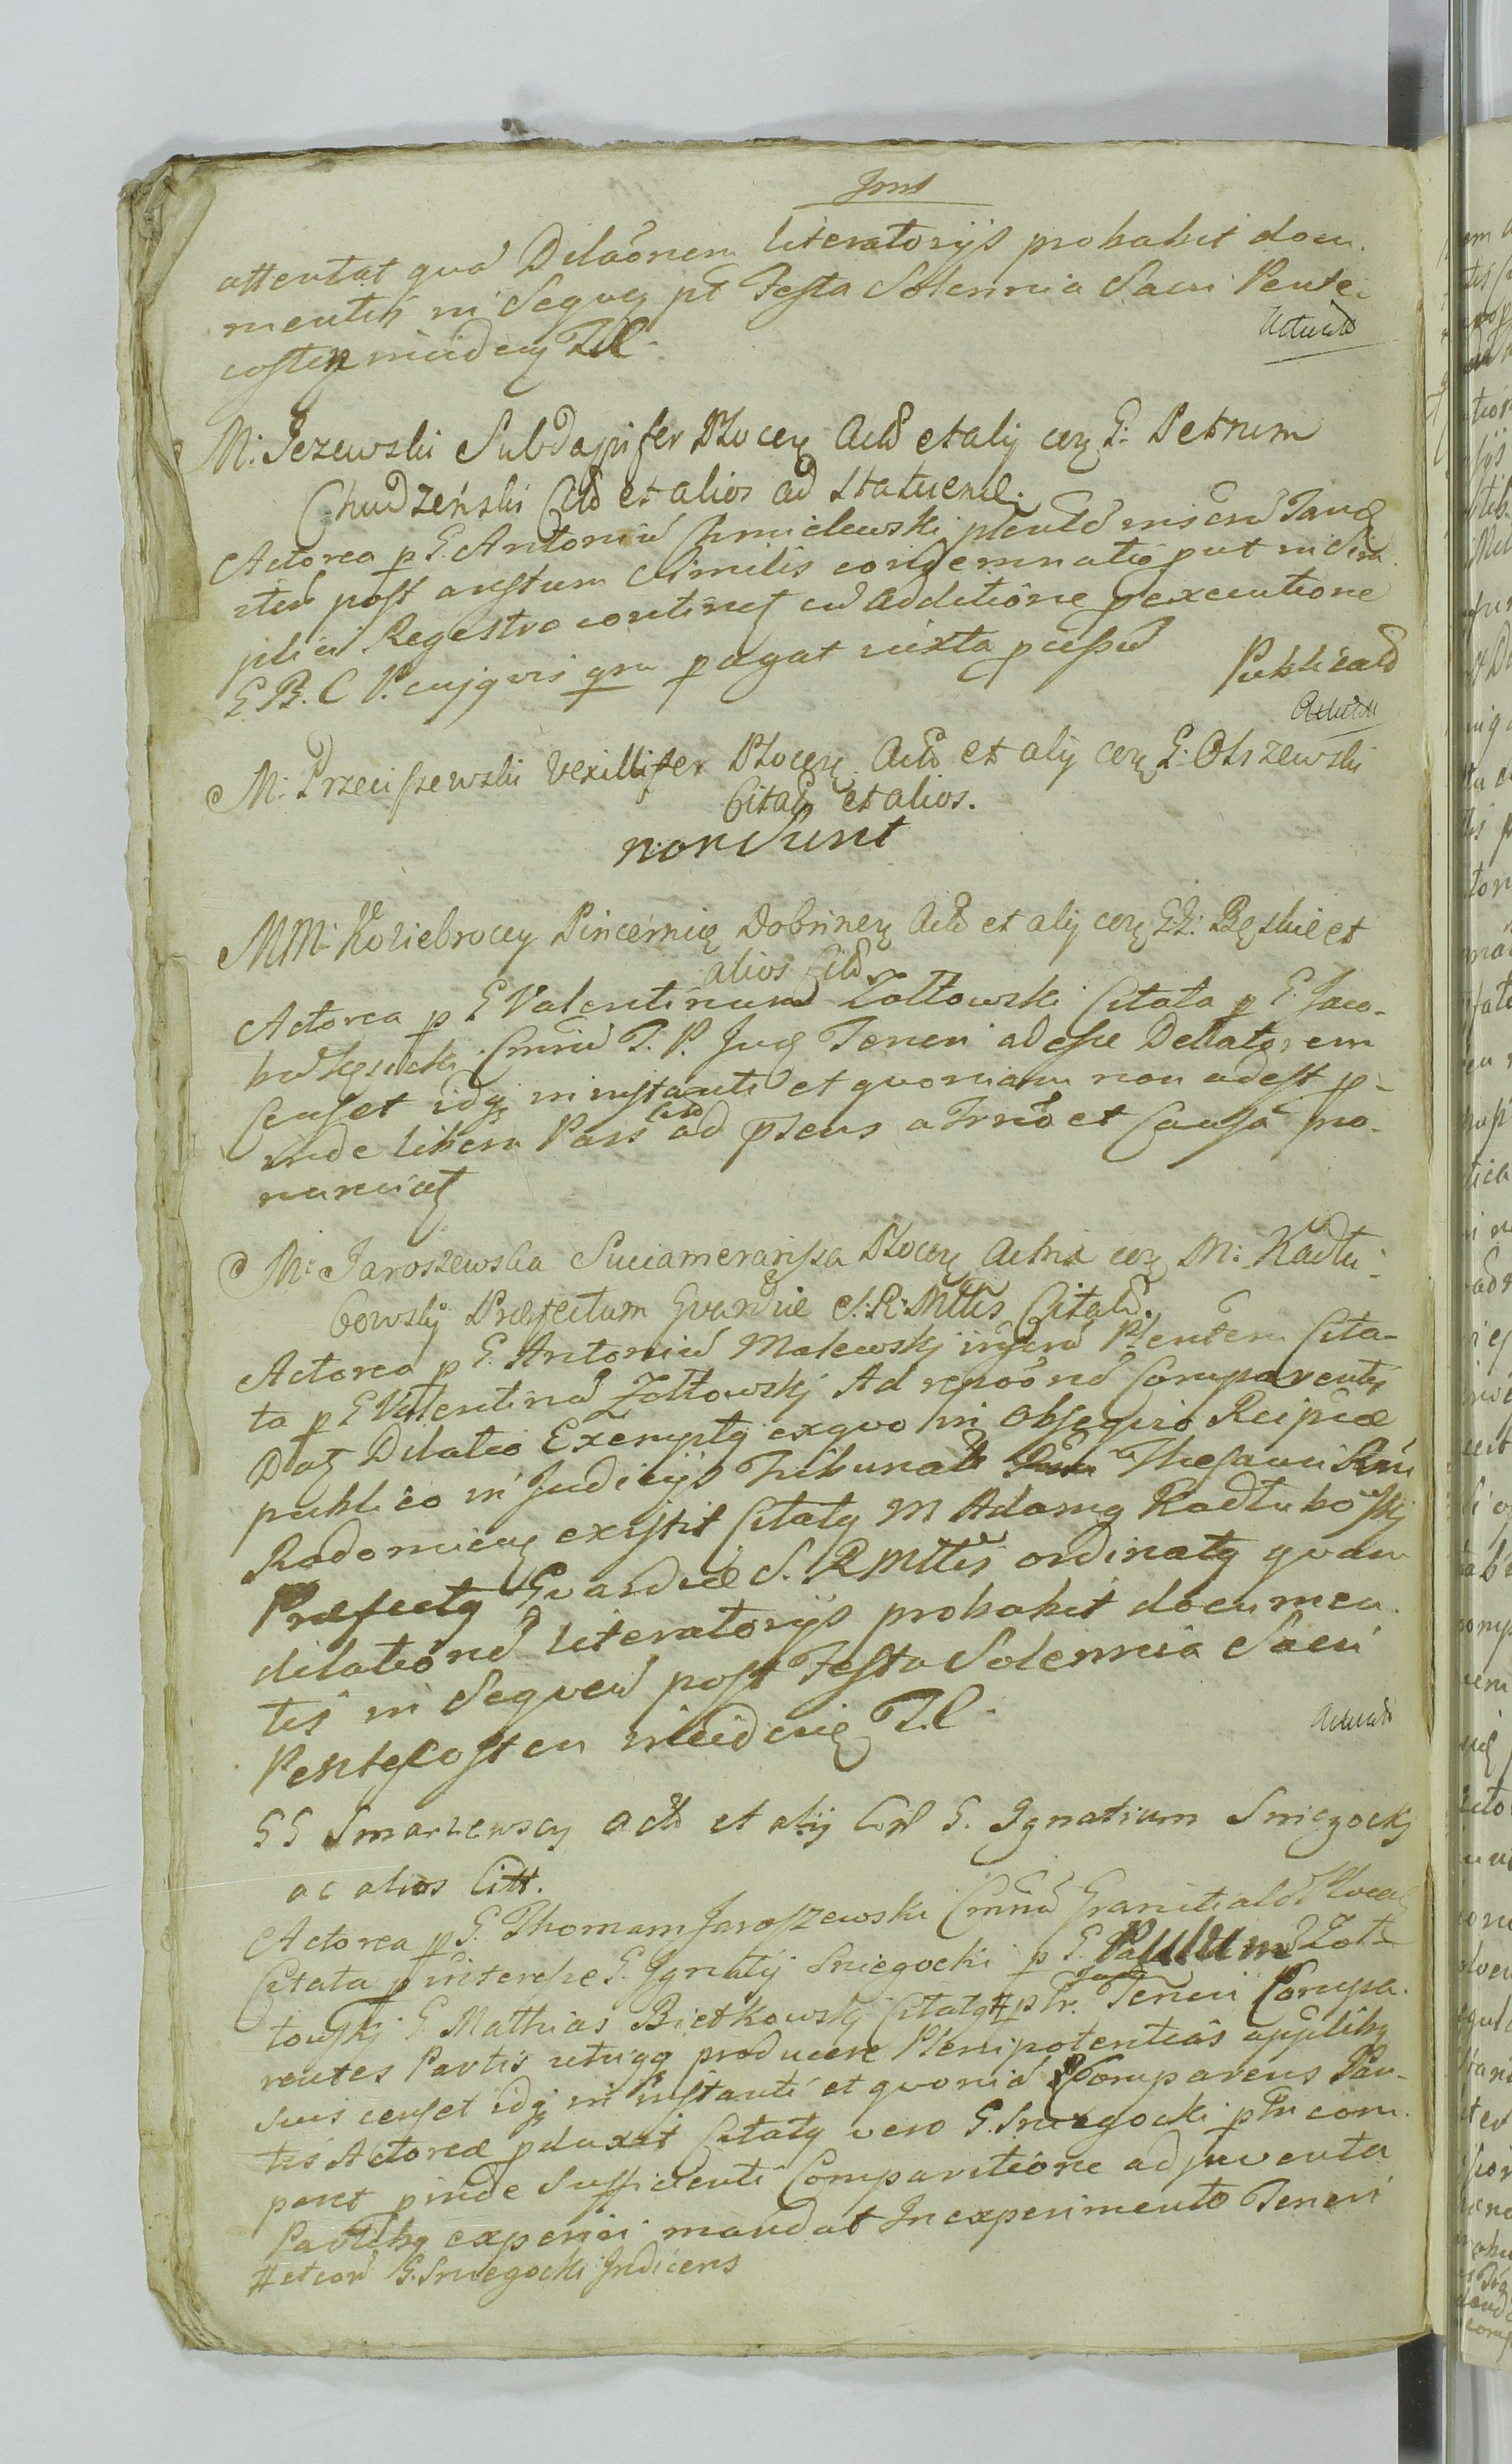 attentat qua Dilaõnem literatorijs probabit docu.
mentis in Seqveñ pt Festa Solennia Sacri Pente-
costes incideñ T.C.
Actuatũ
M: Jezewski Subdapifer Plocen Actô et alij coñ G: Petrum
Chudzeński Citô et alios ad statuend.
Actorea p G. Antoniũ Chmielewski
post austum Similis condemnatio put in Sim
plici Regestro continet cũ Additione p executione
G B. C P. cujqvis gra pagat juxta pcessũ
Publicatũ
Actuatũ
M: Przeciszewski Vexillifer Plocen Actô et alij coñ G: Olszewski
Citat et alios.
non sunt
MM: Koziebrocey Pincernię Dobrinen Actô et alij coñ GG: Bęskie et
alios Citô.
Actorea p G Valentinum Zołtowski Citata p G. Jaco-
bũ Cmñũ T. P. Jud Teneri adesse Delatorem
Censet idq in instanti et qvoniam non adest p-
inde libera Pars Citô ad ptens a Trnô et Causa pro-
nunciat
M: Jaroszewska Succamerarissa Plocen Actrix coñ M: Kadłu-
bowskj Præfectum Gvardiæ S: R: Mttis Citatũ.
Actorea p G. Antoniũ Malewskj inseru Ptentem Cita-
ta p G Valentinũ Zołtowskj Ad repoõnẽ Comparentis
Dat Dilatio Exempta exqvo in Obseqvio Reipcæ
publico in Judicijs Tribunals Thesauri Rni
Radomien existit Citatq M Adamq Kadłubowskj
Præfectq Gvardiæ S. R Mttis ordinatq qvam
dilationẽ literatorijs probabit documen
tis in Seqveñ post Festa Solennia Sacri
Pentecosten incideñ T.C.
Actuatũ
GG Smarzewscy actô et alij Coñ G. Ignatium Sniegockj
ac alios Citt.
Actorea p G. Thomam Jaroszewski Cmñũ Granicialẽ Plocen
Citata p interesse G. Ignatij Sniegocki p G. Paulum Zoł-
towskj G Mathias Bietkowskj Citatq # ptr. Teneri Compa-
rentes Partis utriqq producere Plenipotentias applibq
suis censet idq in instanti et qvoniã Comparens Par-
tis Actoreæ pduxit Citatq vero G. Sniegocki ptr com-
paret pinde Sufficienti Comparitione adjuventa
Partibq experiri mandat In experimento Teneri
# et coñ G. Sniegocki Judicens